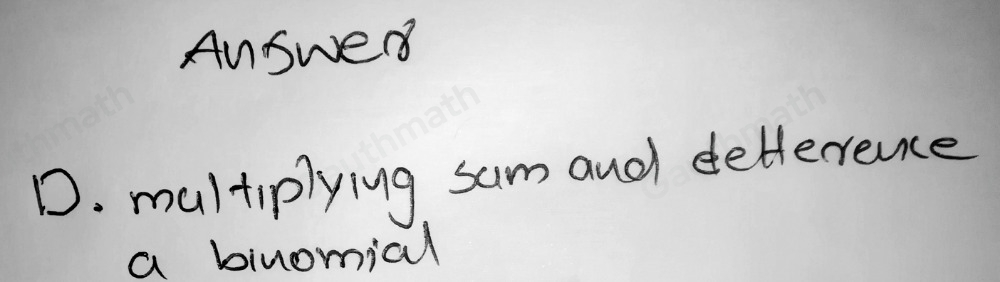 Answer
D. multiplying sum and detterence
a binomial